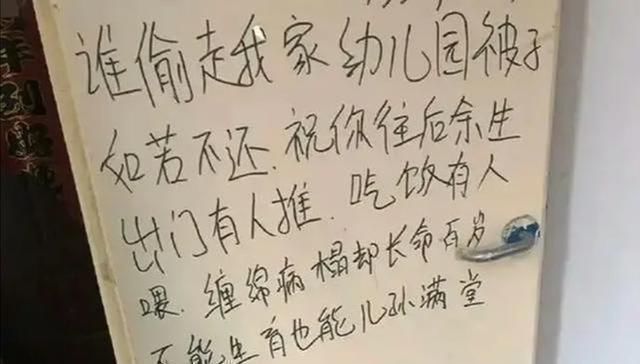 谁偷走我家幼儿园被子
如若不还.祝你往后余生
出门有人推.吃饭有人
喂.缠绵病榻却长命百岁
不能生育也能儿孙满堂